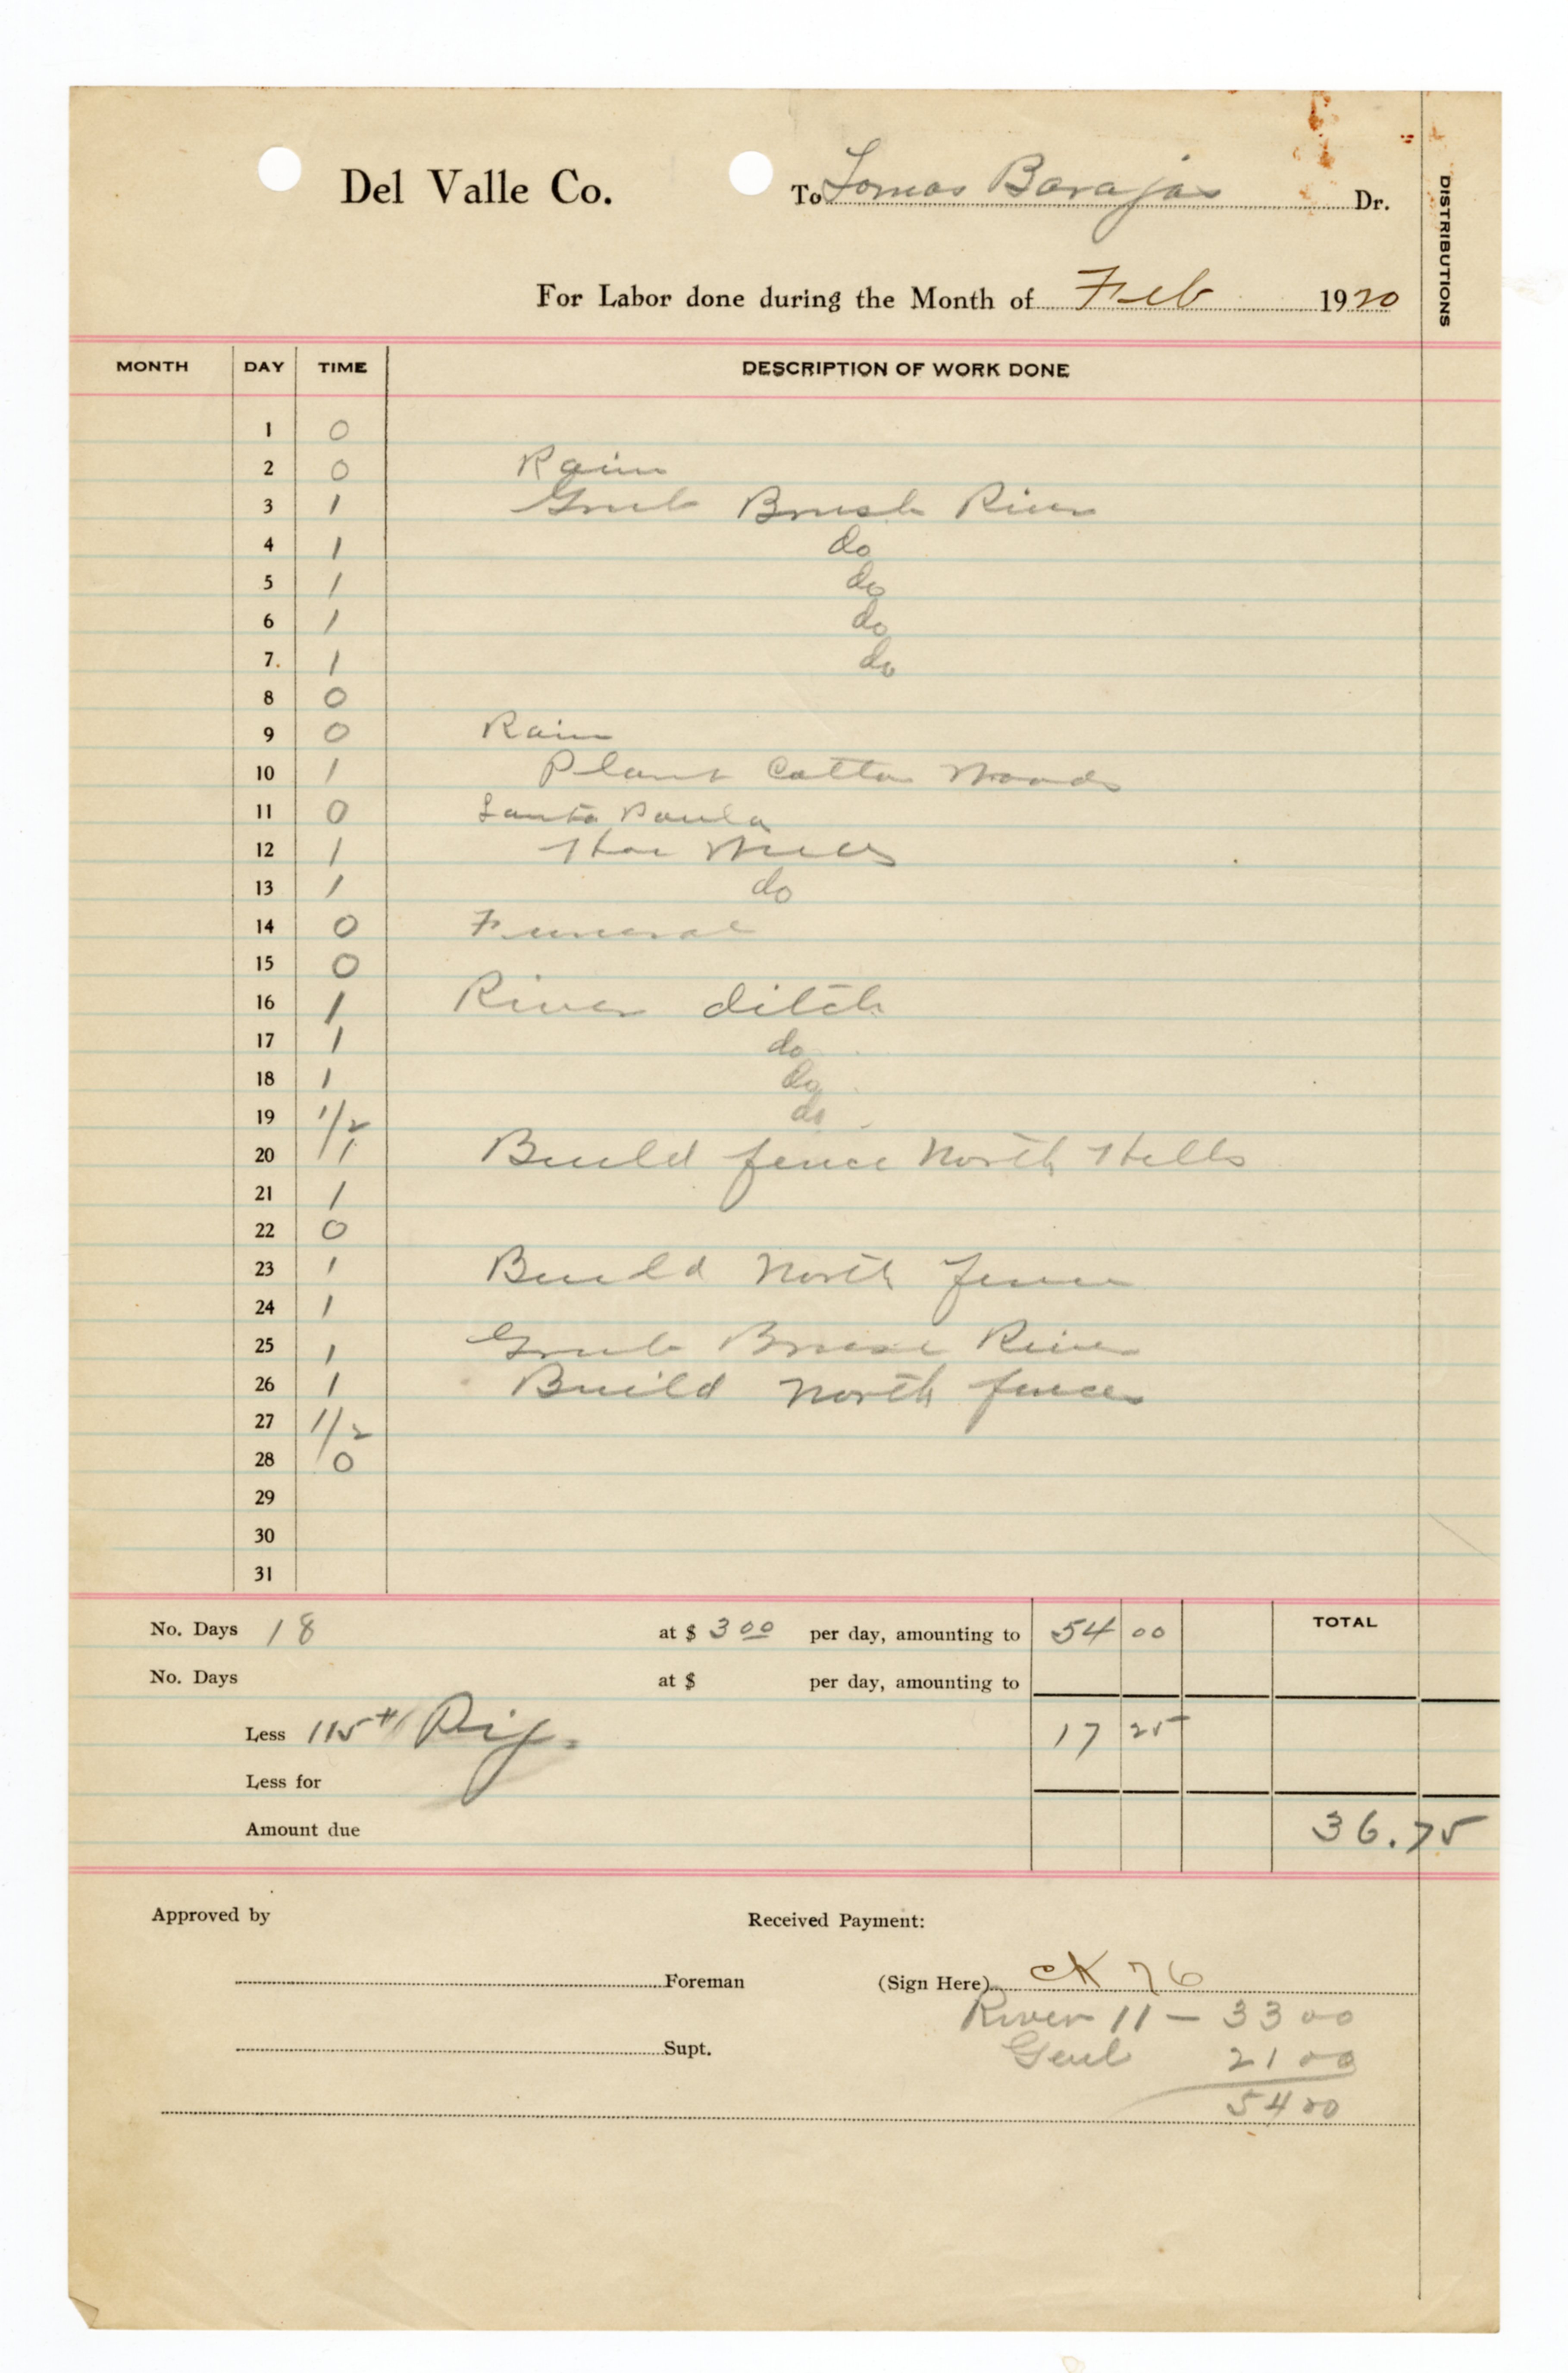 Del Valle Co. To Tomas Barajas Dr.
DISTRIBUTIONS
For Labor done during the Month of Feb 1920
MONTH DAY TIME DESCRIPTION OF WORK DONE
1 0
2 0 Rain
3 1 Grub Brush River
4 1 do
5 1 do
6 1 do
7 1 do
8 0
9 0 Rain
10 1 Plant Cotton Woods
11 0 Santa Paula
12 1 Hoe
13 1 do
14 0 Funeral
15 0
16 1 River ditch
17 1 do
18 1 do
19 1/2 do
20 1 Build fence North Hills
21 1
22 0
23 1 Build North fence
24 1
25 1 Grub Brush River
26 1 Build North fence
27 1/2
28 0
29
30
31
No. Days 18 at $ 3 00 per day, amounting to 54 00 TOTAL
No. Days at $ per day, amounting to
Less 115# Pig. 17 25
Less for
Amount due 36.75
Approved by Received Payment:
Foreman (Sign Here) CK 76
River 11 — 33 00
Supt. Genl 21 00
54 00